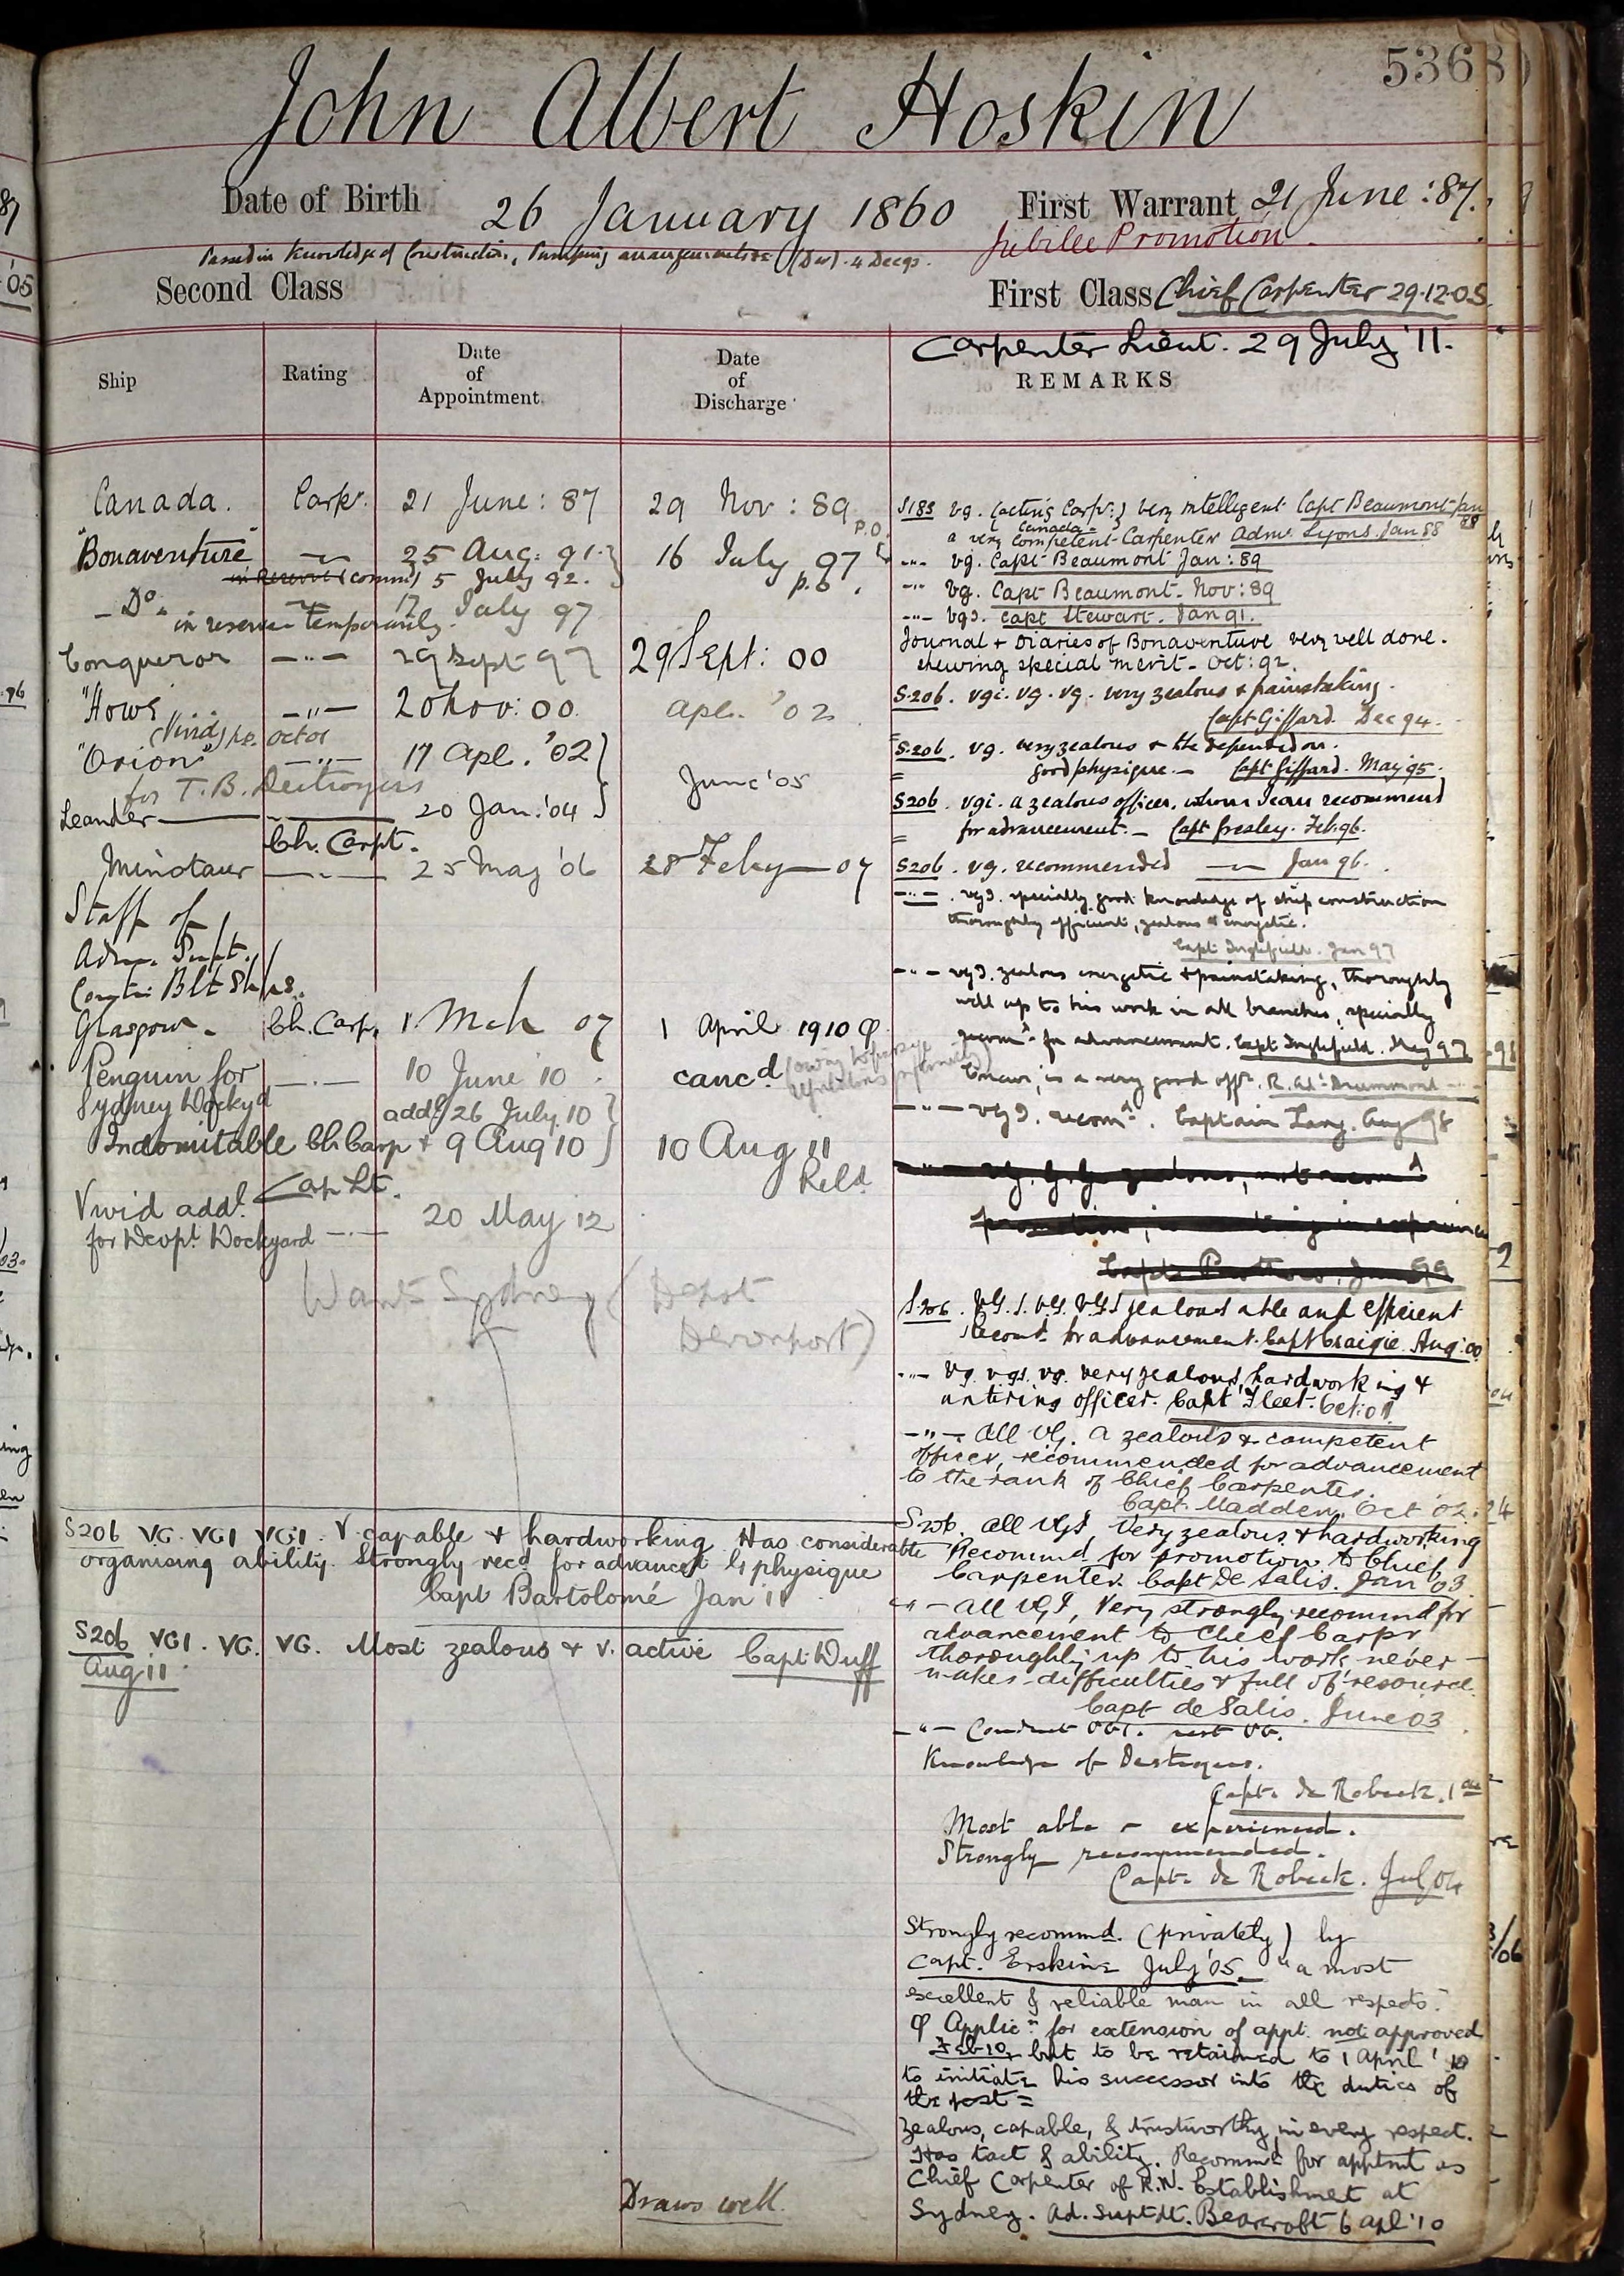 5368
John Albert Hoskin
Date of Birth 26 January 1860 First Warrant 21 June :87.
Jubilee Promotion
Passed in Knowledge of Construction, Pumping arrangements &c
Second Class First Class Chief Carpenter 29.12.05
Carpenter Lieut. 29 July '11.
Ship Rating Date of Appointment Date of Discharge REMARKS
Canada. Carpr. 21 June: 87 29 Nov: 89
"Bonaventure" 25 Aug: 91 16 July 97 P.O.
in Reserve (commd 5 July 92.
p.o.
- Do. 17 July 97
in reserve temporarily.
Conqueror -"- 29 Sept 97 29 Sept: 00
"Howe -"- 20 Nov: 00. Apl. '02
(Vivid) Oct 01
"Orion" -"- 17 Apl. '02
for T.B. Destroyers June '05
Leander 20 Jan: '04
Ch. Carpt.
Minotaur 25 May '06 28 Feby 07
Staff of
Adm. Supt.
Contr. Blt Ships.
Glasgow. Ch. Carp. 1 Mch 07 1 April 1910 φ
Penguin for -"- 10 June 10. cancd
Sydney Dockyd
addl 26 July 10
Indomitable Ch Carp + 9 Aug 10 10 Aug 11
Reld
Carp Lt.
Vivid addl. 20 May 12
for Devpt Dockyard
Wants Sydney (Depot
Devonport)
S206 VG. VGI VGI. V. capable & hardworking Has considerable
organising ability. Strongly recd for advancet G physique
Capt Bartolomé Jan 11
S206 VGI. VG. VG. Most zealous & v. active Capt Duff
Aug 11
Draws well.
S183 vg. (acting Carpr.) very intelligent Capt Beaumont Jan 88
Canada
a very competent Carpenter Adml Lyons Jan 88
-"- vg. Capt Beaumont Jan: 89
-"- vg. Capt Beaumont. Nov: 89
-"- vgI. Capt Stewart. Jan 91.
Journal & Diaries of Bonaventure very well done.
shewing special merit. Oct: 92.
S.206. vgi. vg. vg. very zealous & painstaking.
Capt Giffard. Dec 94.
S.206. vg. very zealous & to be depended on.
good physique. Capt Giffard. May 95.
S206. vgi. a zealous officer, whom I can recommend
for advancement. Capt Gresley. Feb. 96.
S206. vg. recommended Jan 96.
-"- . vgI. specially good knowledge of ship construction
thoroughly efficient, zealous & energetic.
Capt Inglefield. Jan 97
-"- vgI. zealous energetic & painstaking, thoroughly
well up to his work in all branches, specially
recomd for advancement. Capt Inglefield. May 97
is a very good offr. R. Adl Drummond
-"- vgI. recomd. Captain Lang. Aug 98
S.206. VG.I. VG. VGI zealous able and efficient
Recomd for advancement. Capt Craigie. Aug: 00
-"- vg. vgi. vg. very zealous, hardworking &
untiring officer. Capt Fleet. Oct: 01.
-"- All VG. A zealous & competent
officer, recommended for advancement
to the rank of Chief Carpenter.
Capt. Madden. Oct '02.
S206. All VGI, Very zealous & hardworking
Recommd. for promotion to Chief
Carpenter. Capt De Salis. Jan '03.
-"- All VGI, Very strongly recommd for
advancement to Chief Carpr
thoroughly up to his work never
makes difficulties & full of resource.
Capt de Salis. June 03
-"- Conduct VGI. rest VG.
Knowledge of Destroyers.
Capt. de Robeck.
Most able & experienced.
Strongly recommended.
Capt. de Robeck. Jul 04
Strongly recommd. (privately) by
Capt. Erskine July '05. "a most
excellent & reliable man in all respects."
φ Applicn for extension of appt. not approved
Feb 10, but to be retained to 1 April '10
to initiate his successor into the duties of
the post =
Zealous, capable, & trustworthy in every respect.
Has tact & ability. Recommd for apptmt as
Chief Carpenter of R.N. Establishment at
Sydney. Ad. Supt dt. Bearcroft 6 Apl '10